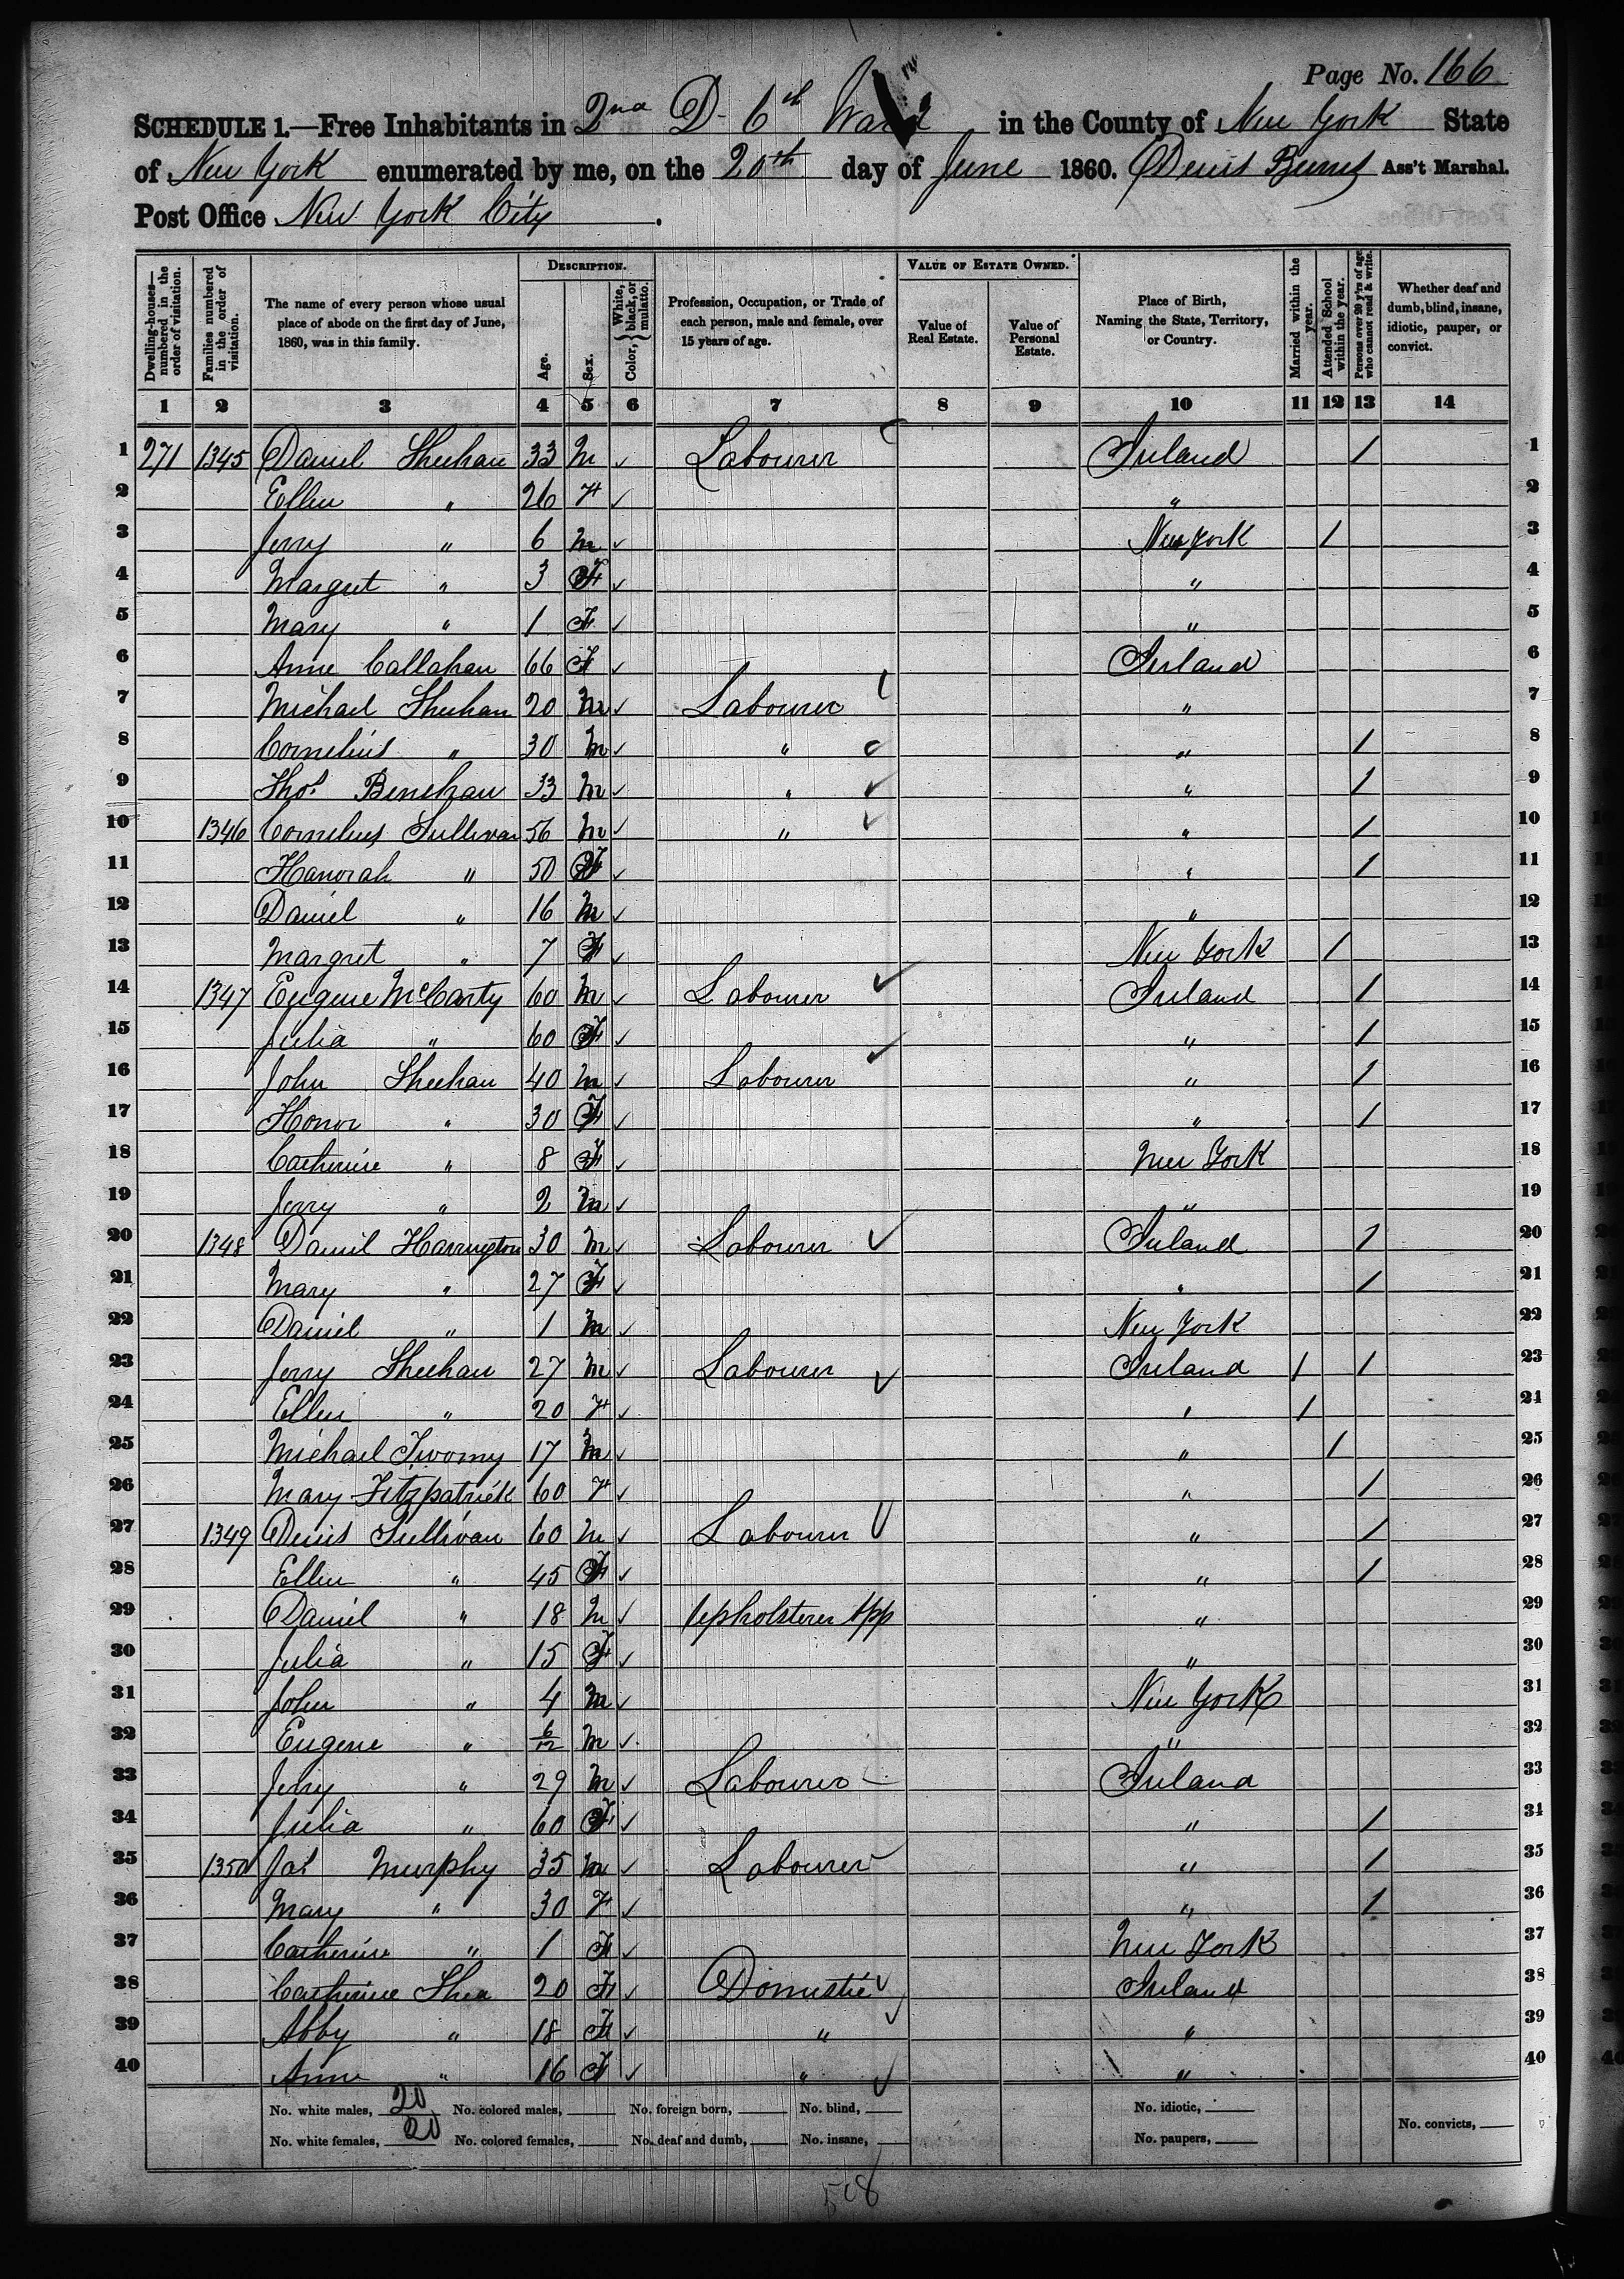 Page No. 166
SCHEDULE 1.—Free Inhabitants in 2nd D. 6th Ward in the County of New York State
of New York enumerated by me, on the 20th day of June 1860. Denis Burns Ass't Marshal.
Post Office New York City.
Dwelling-houses—numbered in the order of visitation. Families numbered in the order of visitation. The name of every person whose usual place of abode on the first day of June, 1860, was in this family. DESCRIPTION. Age. Sex. Color, { White, black, or mulatto. Profession, Occupation, or Trade of each person, male and female, over 15 years of age. VALUE OF ESTATE OWNED. Value of Real Estate. Value of Personal Estate. Place of Birth, Naming the State, Territory, or Country. Married within the year. Attended School within the year. Persons over 20 y'rs of age who cannot read & write. Whether deaf and dumb, blind, insane, idiotic, pauper, or convict.
1 2 3 4 5 6 7 8 9 10 11 12 13 14
1 271 1345 Daniel Sheehan 33 M ✓ Labourer Ireland / 1
2 Ellen " 26 F ✓ " 2
3 Jerry " 6 M ✓ New York / 3
4 Margret " 3 F ✓ " 4
5 Mary " 1 F ✓ " 5
6 Anne Callahan 66 F ✓ Ireland 6
7 Michael Sheehan 20 M ✓ Labourer " 7
8 Cornelius " 30 M ✓ " " / 8
9 Thos Benehan 33 M ✓ " ✓ " / 9
10 1346 Cornelius Sullivan 56 M ✓ " ✓ " / 10
11 Hanorah " 50 F ✓ " / 11
12 Daniel " 16 M ✓ " 12
13 Margret " 7 F ✓ New York / 13
14 1347 Eugene McCarty 60 M ✓ Labourer ✓ Ireland / 14
15 Julia " 60 F ✓ " / 15
16 John Sheehan 40 M ✓ Labourer ✓ " / 16
17 Honor " 30 F ✓ " / 17
18 Catherine " 8 F ✓ New York 18
19 Jerry " 2 M ✓ " 19
20 1348 Daniel Harrington 30 M ✓ Labourer ✓ Ireland / 20
21 Mary " 27 F ✓ " / 21
22 Daniel " 1 M ✓ New York 22
23 Jerry Sheehan 27 M ✓ Labourer ✓ Ireland / / 23
24 Ellen " 20 F ✓ " / 24
25 Michael Twomy 17 M ✓ " / 25
26 Mary Fitzpatrick 60 F ✓ " / 26
27 1349 Denis Sullivan 60 M ✓ Labourer ✓ " / 27
28 Ellen " 45 F ✓ " / 28
29 Daniel " 18 M ✓ Upholsterer App " 29
30 Julia " 15 F ✓ " 30
31 John " 4 M ✓ New York 31
32 Eugene " 6/12 M ✓ " 32
33 Jerry " 29 M ✓ Labourer Ireland 33
34 Julia " 60 F ✓ " / 34
35 1350 Jas Murphy 35 M ✓ Labourer " / 35
36 Mary " 30 F ✓ " / 36
37 Catherine " 1 F ✓ New York 37
38 Catherine Shea 20 F ✓ Domestic ✓ Ireland 38
39 Abby " 18 F ✓ " ✓ " 39
40 Anne " 16 F ✓ " ✓ " 40
No. white males, 20 No. colored males, No. foreign born, No. blind, No. idiotic,
No. white females, 20 No. colored females, No. deaf and dumb, No. insane, No. paupers, No. convicts,
508